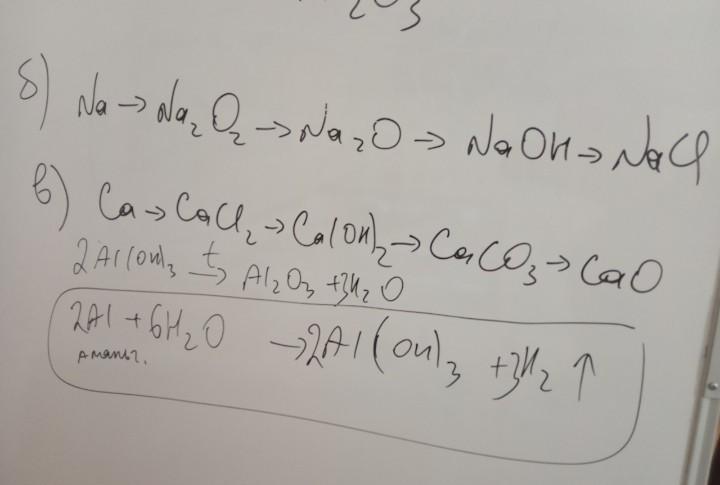 2O3
б) Na → Na2O2 → Na2O → NaOH → NaCl
в) Ca → CaCl2 → Ca(OH)2 → CaCO3 → CaO
2Al(OH)3 t→ Al2O3 + 3H2O
2Al + 6H2O → 2Al(OH)3 + 3H2 ↑